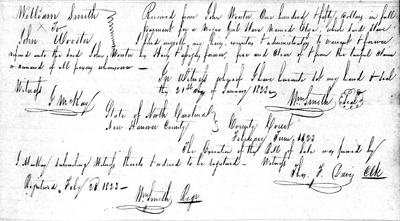 William Smith Received from John Wooster One hundred & fifty dollars in full
To payment for a Negro Girl Slave named Eliza, which said slave
John Wooster I bind myself my heirs, executors & administrators, to warrant & forever
defend unto the said John Wooster his Heirs & assigns forever, free and clear of & from the lawful claim
or demand of all persons whomsoever —
In Witness whereof I have hereunto set my hand & seal
Witness the 21st day of January 1823
J McKay Wm Smith Seal
State of North Carolina
New Hanover County County Court
Term 1823
The Execution of the Bill of Sale was proved by
J McKay subscribing Witness thereto & ordered to be registered — Witness
Registered, Feby 28 1823 — Tho. F. Davis Clk
Wm Smith Regr